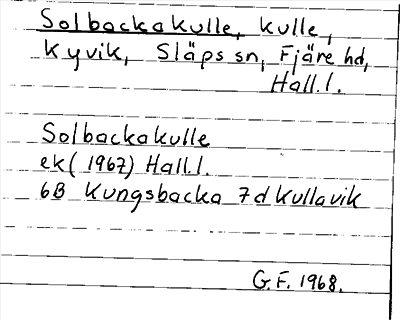 Solbackakulle, kulle,
Kyvik, Släps sn, Fjäre hd,
Hall.l.
Solbackakulle
ek (1967) Hall.l.
6B Kungsbacka 7d Kullavik
G.F. 1968.